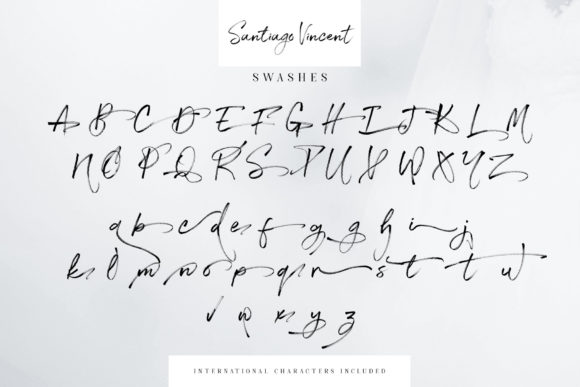 Santiago Vincent
SWASHES
A B C D E F G H I J K L M
N O P Q R S T U V W X Y Z
a b c d e f g g h i j
k l m n o p q r s t t u
v w x y z
INTERNATIONAL CHARACTERS INCLUDED